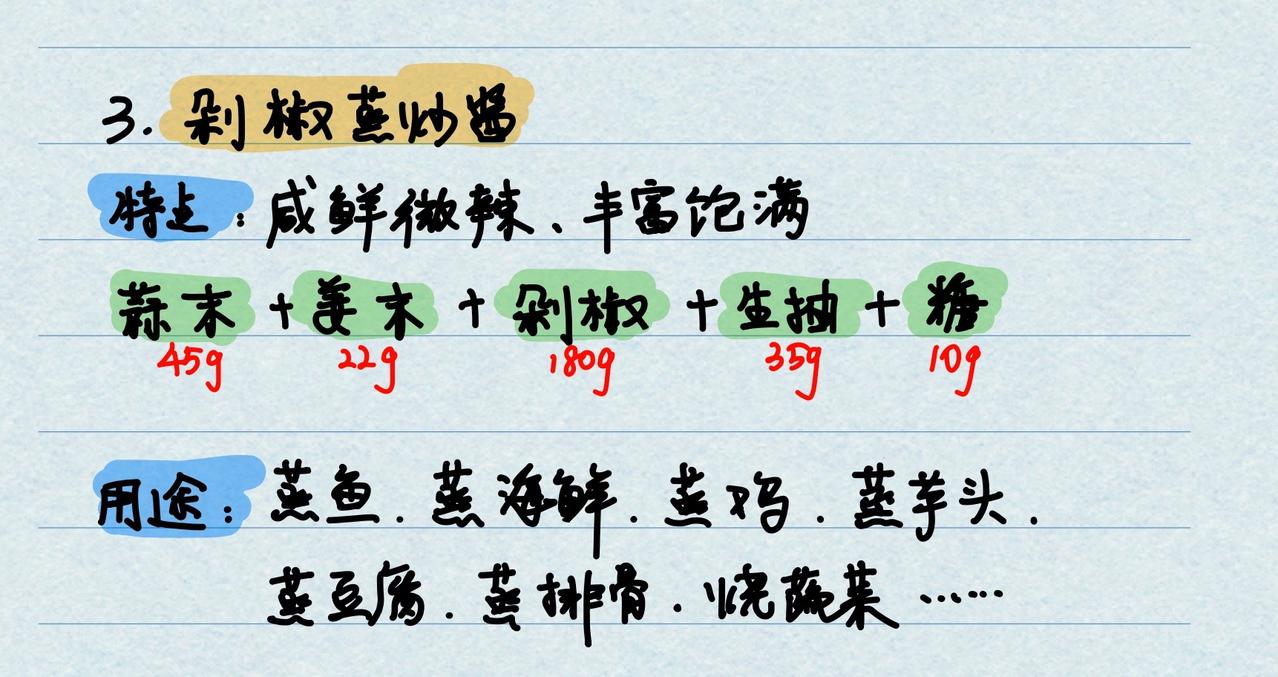 3. 剁椒蒸炒酱
特点：咸鲜微辣、丰富饱满
蒜末 + 姜末 + 剁椒 + 生抽 + 糖
45g 22g 180g 35g 10g
用途：蒸鱼．蒸海鲜．蒸鸡．蒸芋头．
蒸豆腐．蒸排骨．烧蔬菜……